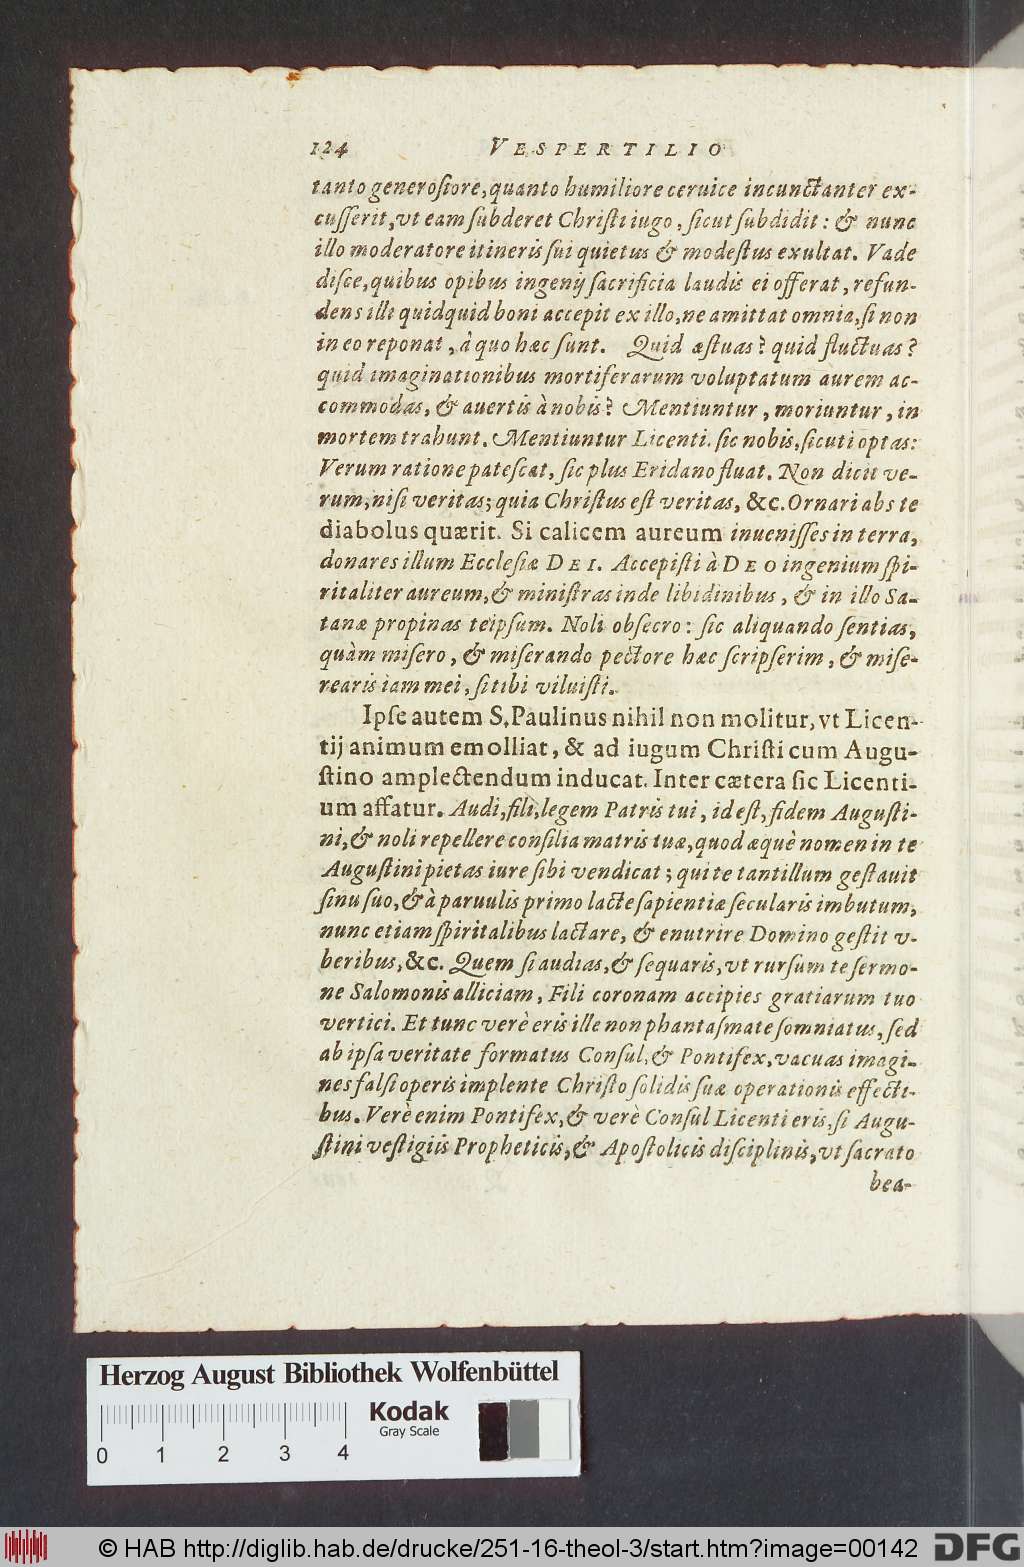 124 VESPERTILIO
tanto generoſiore, quanto humiliore ceruice incunctanter ex-
cuſſerit, vt eam ſubderet Chriſti iugo, ſicut ſubdidit: & nunc
illo moderatore itineris ſui quietus & modeſtus exultat. Vade
diſce, quibus opibus ingenij ſacrificia laudis ei offerat, refun-
dens illi quidquid boni accepit ex illo, ne amittat omnia, ſi non
in eo reponat, à quo hæc ſunt. Quid æſtuas? quid fluctuas?
quid imaginationibus mortiferarum voluptatum aurem ac-
commodas, & auertis à nobis? Mentiuntur, moriuntur, in
mortem trahunt. Mentiuntur Licenti. ſic nobis, ſicuti optas:
Verum ratione pateſcat, ſic plus Eridano fluat. Non dicit ve-
rum, niſi veritas; quia Chriſtus eſt veritas, &c. Ornari abs te
diabolus quærit. Si calicem aureum inueniſſes in terra,
donares illum Eccleſiæ DEI. Accepiſti à DEO ingenium ſpi-
ritaliter aureum, & miniſtras inde libidinibus, & in illo Sa-
tanæ propinas teipſum. Noli obſecro: ſic aliquando ſentias,
quàm miſero, & miſerando pectore hæc ſcripſerim, & miſe-
rearis iam mei, ſi tibi viluiſti.
Ipſe autem S. Paulinus nihil non molitur, vt Licen-
tij animum emolliat, & ad iugum Chriſti cum Augu-
ſtino amplectendum inducat. Inter cætera ſic Licenti-
um affatur. Audi, fili, legem Patris tui, id eſt, fidem Auguſti-
ni, & noli repellere conſilia matris tuæ, quod æquè nomen in te
Auguſtini pietas iure ſibi vendicat; qui te tantillum geſtauit
ſinu ſuo, & à paruulis primo lacte ſapientiæ ſecularis imbutum,
nunc etiam ſpiritalibus lactare, & enutrire Domino geſtit v-
beribus, &c. Quem ſi audias, & ſequaris, vt rurſum te ſermo-
ne Salomonis alliciam, Fili coronam accipies gratiarum tuo
vertici. Et tunc verè eris ille non phantaſmate ſomniatus, ſed
ab ipſa veritate formatus Conſul, & Pontifex, vacuas imagi-
nes falſi operis implente Chriſto ſolidis ſuæ operationis effecti-
bus. Verè enim Pontifex, & verè Conſul Licenti eris, ſi Augu-
ſtini veſtigiis Propheticis, & Apoſtolicis diſciplinis, vt ſacrato
bea-
Herzog August Bibliothek Wolfenbüttel
Kodak
Gray Scale
0 1 2 3 4
© HAB http://diglib.hab.de/drucke/251-16-theol-3/start.htm?image=00142 DFG